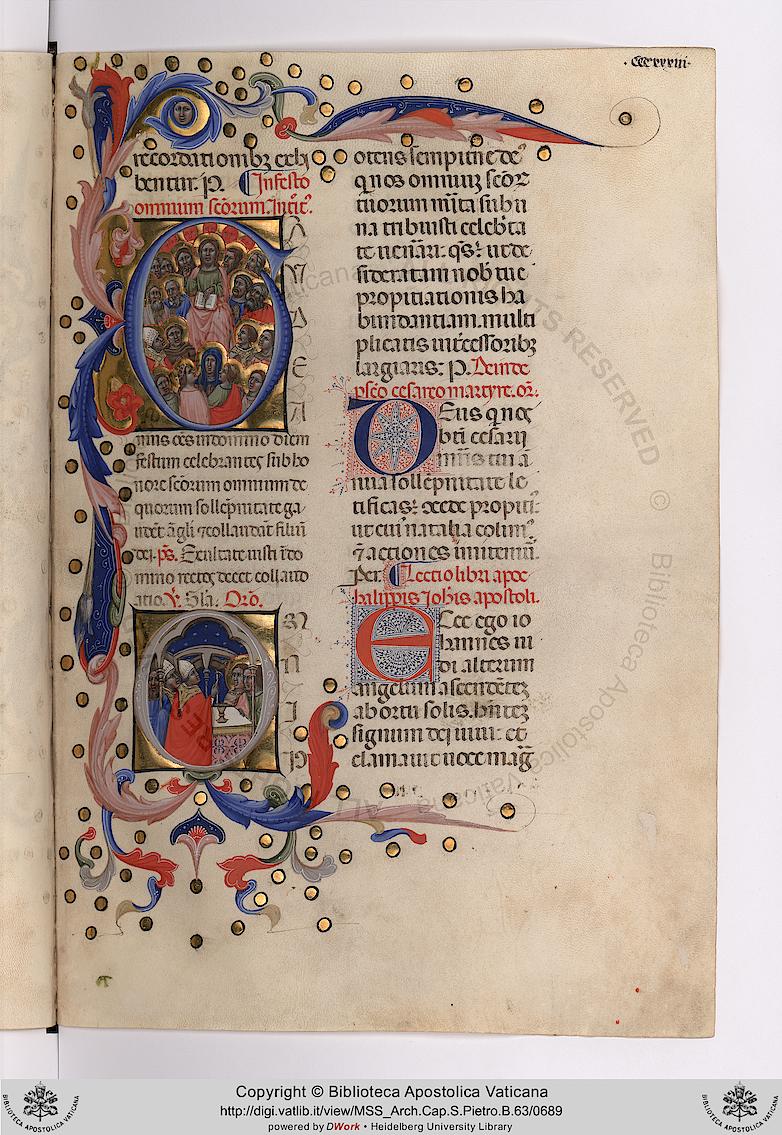 · CCCXXXIII ·
recordationibz exhi
bentur. P. In festo
omnium scorum. Introit.
G A
V
D
E
A
mus oes in domino diem
festum celebrantes sub ho
nore scorum omnium de
quorum sollepnitate ga
udent angli et collaudant filium
dei. ps. Exultate iusti i do
mino rectos decet collaud
atio. V. Gla. Oro.
O M
N
I
P
otens sempitne de
q nos omnium scor
tuorum mita sub u
na tribuisti celebta
te uenari. qs. ut de
sideratam nob tue
propitiationis ha
bundantiam. multi
plicatis intcessoribz
largiaris. P. Dein de
pseo cesareo martyre. or.
Deus q nos
bti cesarii
mris tui an
nua sollepnitate le
tificas. cede propiti
ut cui natalia colim
et actiones imitemur.
Per. Lectio libri apoc
halippis Iohis apostoli.
Ecce ego io
hannes ui
di alterum
angelum ascendetez
ab ortu solis. hntez
signum dei uiui. et
clamauit uoce mag
Copyright © Biblioteca Apostolica Vaticana
http://digi.vatlib.it/view/MSS_Arch.Cap.S.Pietro.B.63/0689
powered by DWork • Heidelberg University Library